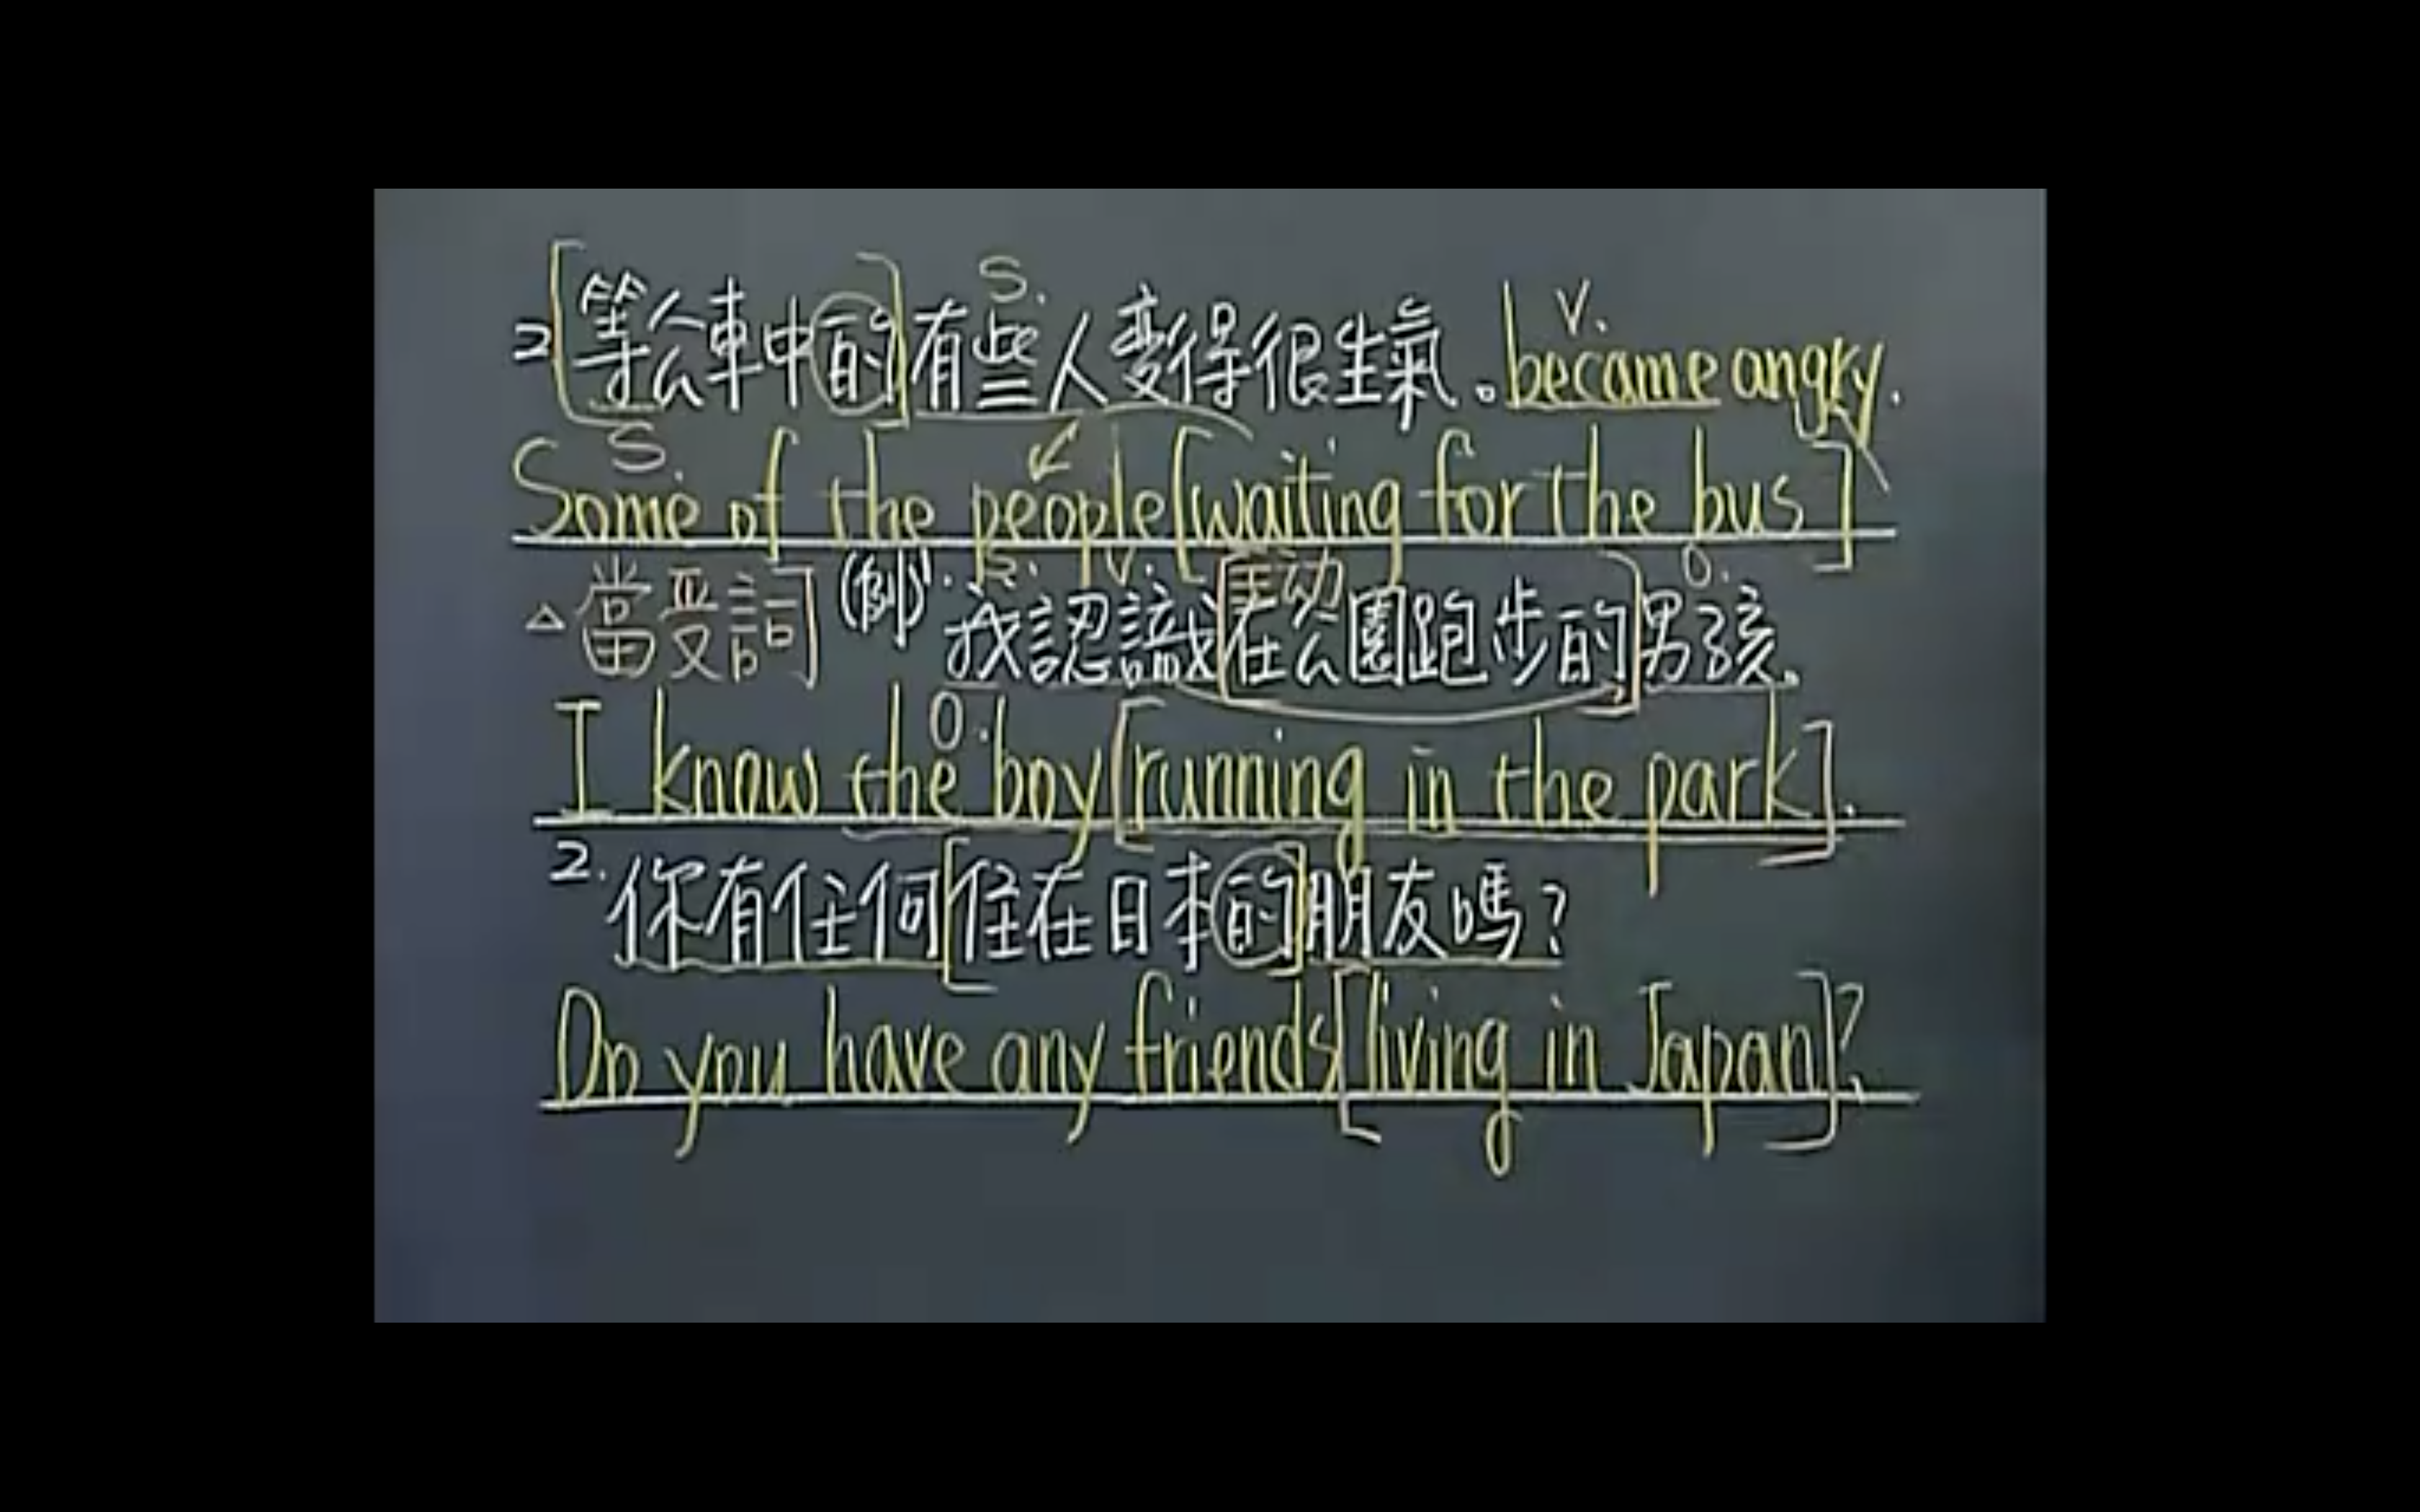 2[等公車中的]有些人变得很生氣。became angry.
S. V.
Some of the people[waiting for the bus]
S.
△當受詞 (例)1. 我認識[在公園跑步的]男孩.
S. V. 主动 O.
I know the boy[running in the park].
O.
2. 你有任何[住在日本的]朋友嗎?
Do you have any friends[living in Japan]?